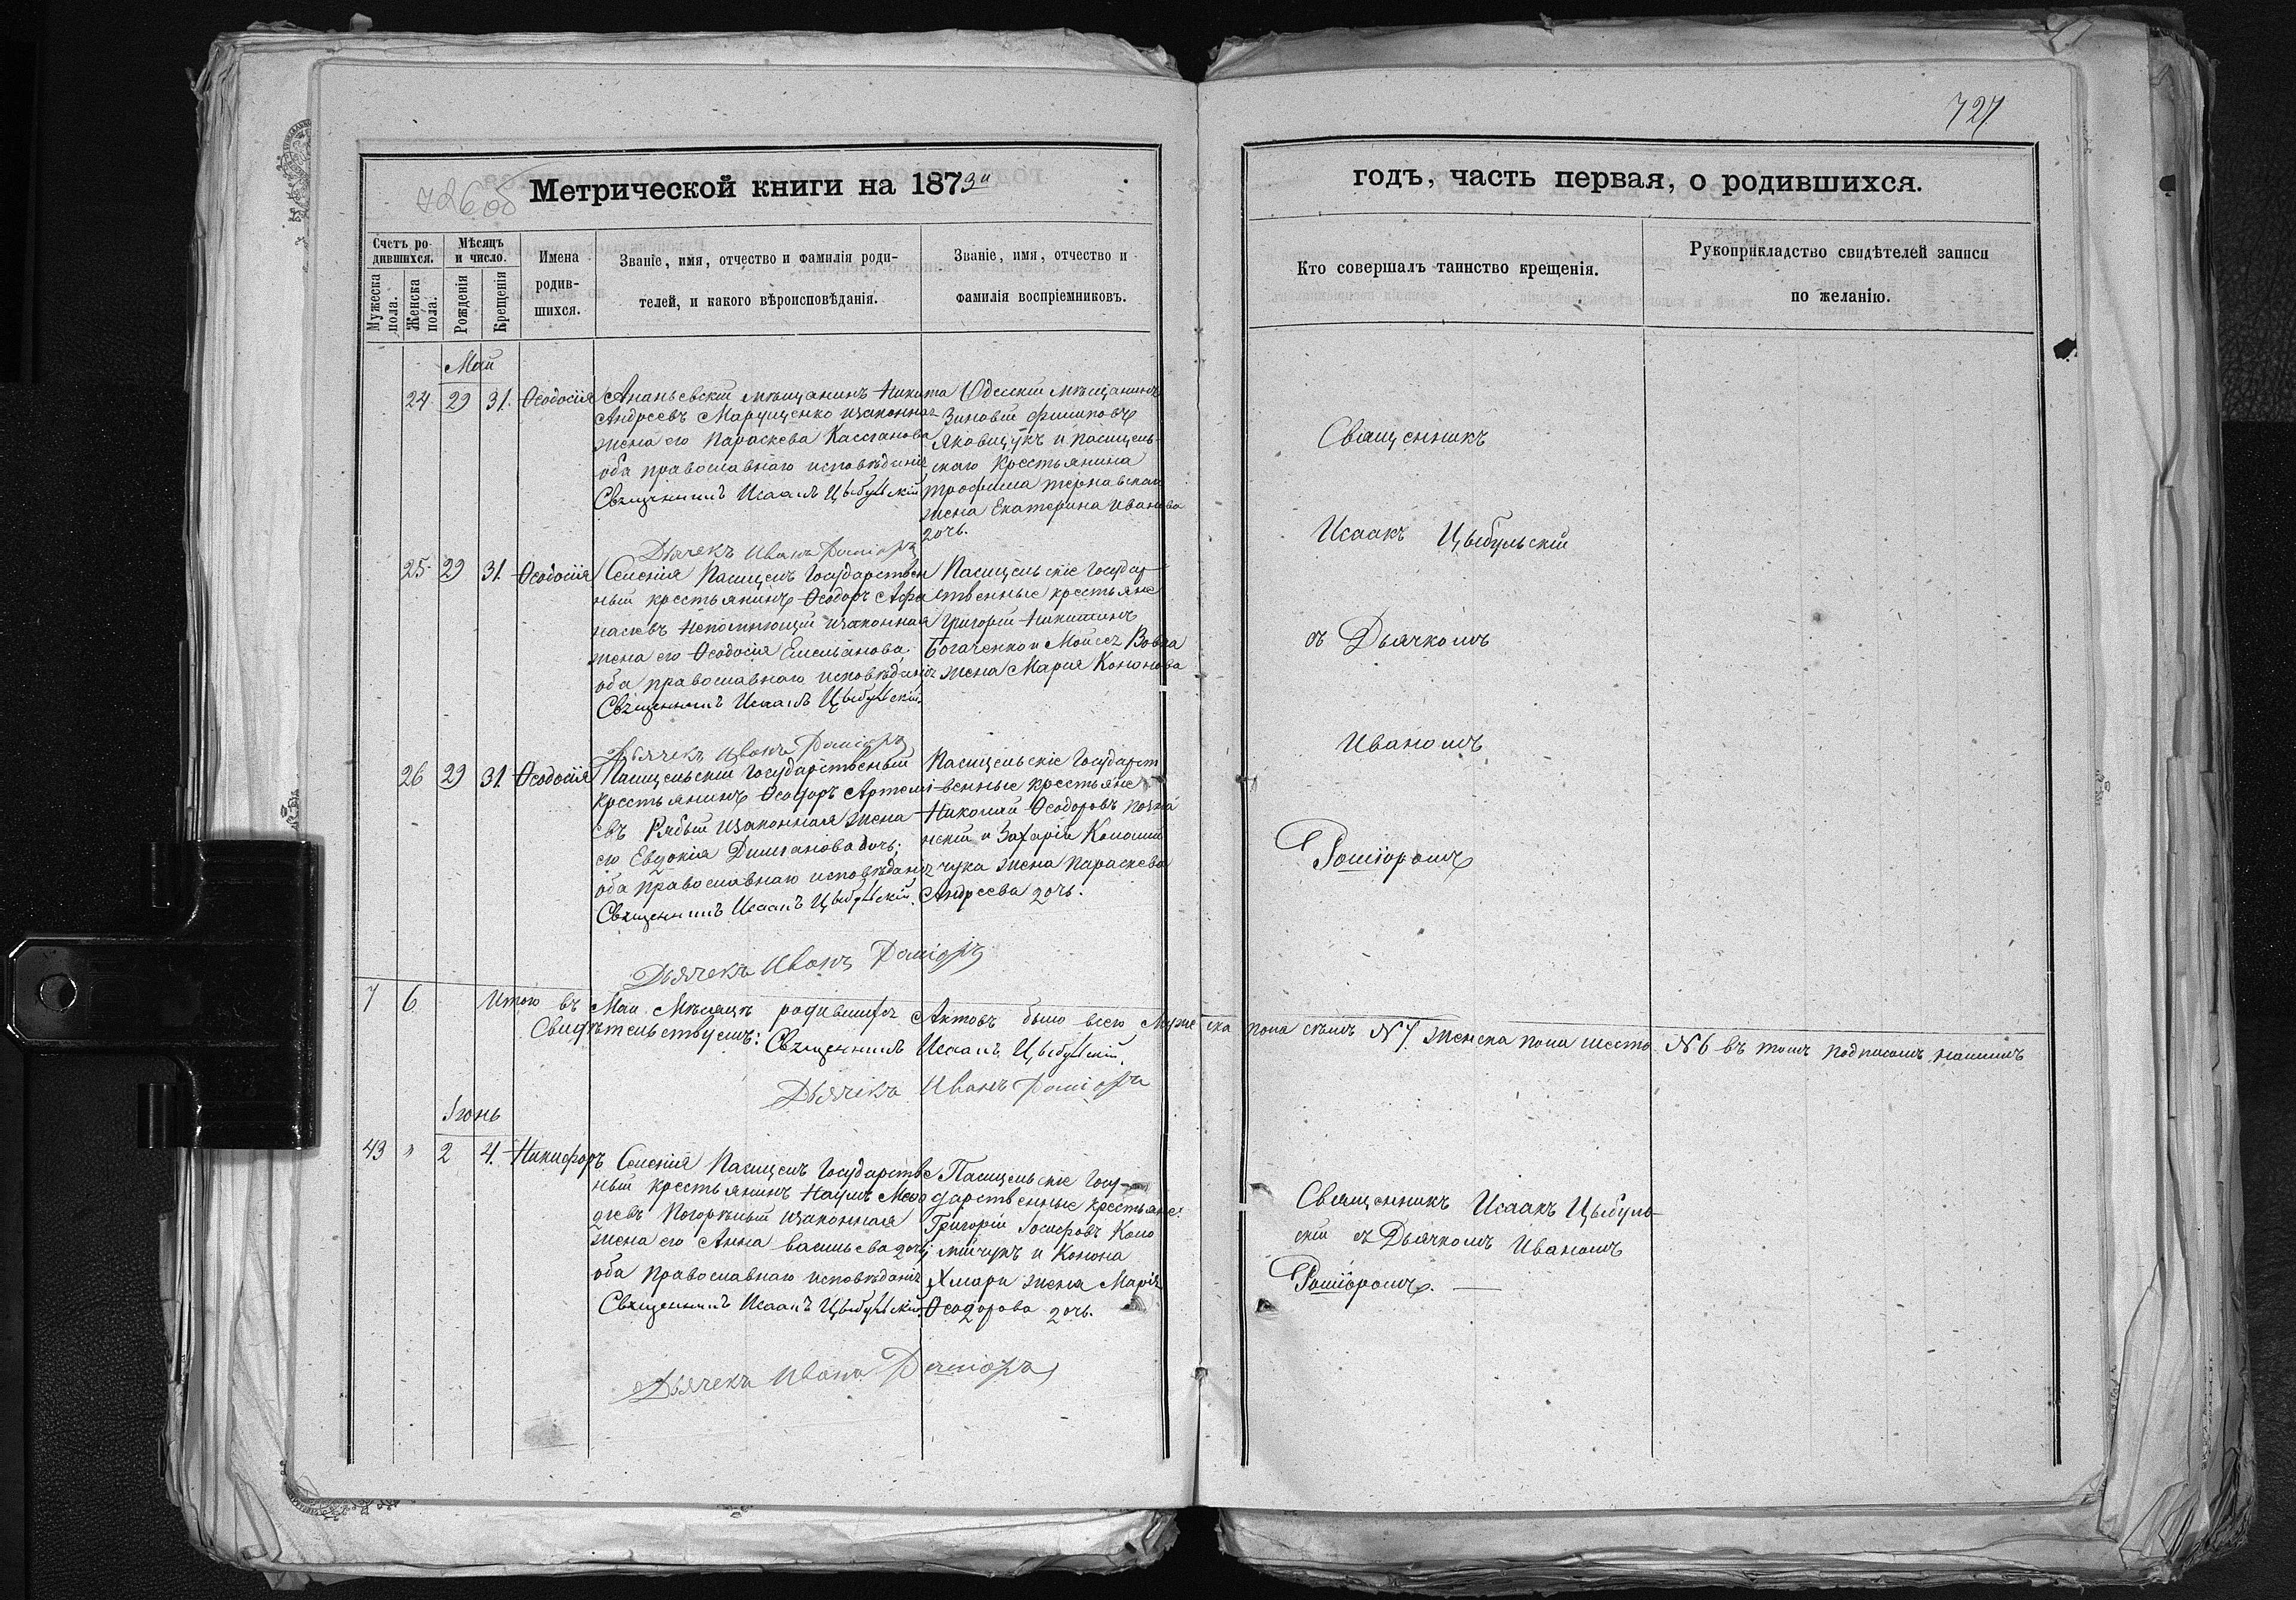 727
726 об
Метрической книги на 1873й
годъ, часть первая, о родившихся.
Счетъ родившихся.
Мужеска пола.
Женска пола.
Мѣсяцъ и число.
Рожденія
Крещенія
Имена родившихся.
Званіе, имя, отчество и фамилія роди-
телей, и какого вѣроисповѣданія.
Званіе, имя, отчество и
фамилія воспріемниковъ.
Кто совершалъ таинство крещенія.
Рукоприкладство свидѣтелей записи
по желанію.
Май
24 29 31. Ѳеодосія
Ананьевскій мѣщанинъ Никита
Андреевъ Марущенко и законная
жена его Параскева Кассіанова
оба православнаго исповѣданія
Священникъ Исаакъ Цыбульскій
Дьячекъ Иванъ Рошіоръ
Одесскій мѣщанинъ
Зиновій Филиповъ
Яковщукъ и пасицель-
скаго Крестьянина
Трофима Тернавскаго
жена Екатерина Иванова
дочь.
25 29 31. Ѳеодосія
Селенія Пасицелъ Государствен
ный крестьянинъ Ѳеодоръ Афа
насьевъ Непомнющій и законная
жена его Ѳеодосія Емельянова
оба православнаго исповѣданія
Священникъ Исаакъ Цыбульскій.
Дьячекъ Иванъ Рошіоръ
Пасицельскіе Государ-
ственные крестьяне
Григорій Никитинъ
Богаченко и Моисея Вовка
жена Марія Кононова
26 29 31. Ѳеодосія
Пасицельскій Государственный
крестьянинъ Ѳеодоръ Артемі-
евъ Рябый и законная жена
его Евдокія Диміанова дочь;
оба православнаго исповѣданія
Священникъ Исаакъ Цыбульскій.
Дьячекъ Иванъ Рошіоръ
Пасицельскіе Государст
венные крестьяне
Николай Ѳеодоровъ
и Захарія Коломій
чука жена Параскева
Андреева дочь.
Священникъ
Исаакъ Цыбульскій
съ Дьячкомъ
Иваномъ
Рошіоромъ
7 6 Итого въ Маѣ Мѣсяцѣ родившихся Актовъ было всего Мужеска пола семь N 7. женска пола шесть N 6 въ томъ подписомъ нашимъ
Свидѣтельствуемъ: Священникъ Исаакъ Цыбульскій.
Дьячекъ Иванъ Рошіоръ
Іюнь
43 " 2 4. Никифоръ
Селенія Пасицелъ Государстве
ный крестьянинъ Наумъ Мефо
діевъ Погорѣлый и законная
жена его Анна Васильева дочь;
оба Православнаго исповѣданія
Священникъ Исаакъ Цыбульскій.
Дьячекъ Иванъ Рошіоръ
Пасицельскіе Госу-
дарственные крестьяне:
Григорій Іосифовъ Коло
мійчукъ и Конона
Хмары жена Марія
Ѳеодорова дочь.
Священникъ Исаакъ Цыбуль-
скій съ Дьячкомъ Иваномъ
Рошіоромъ. —